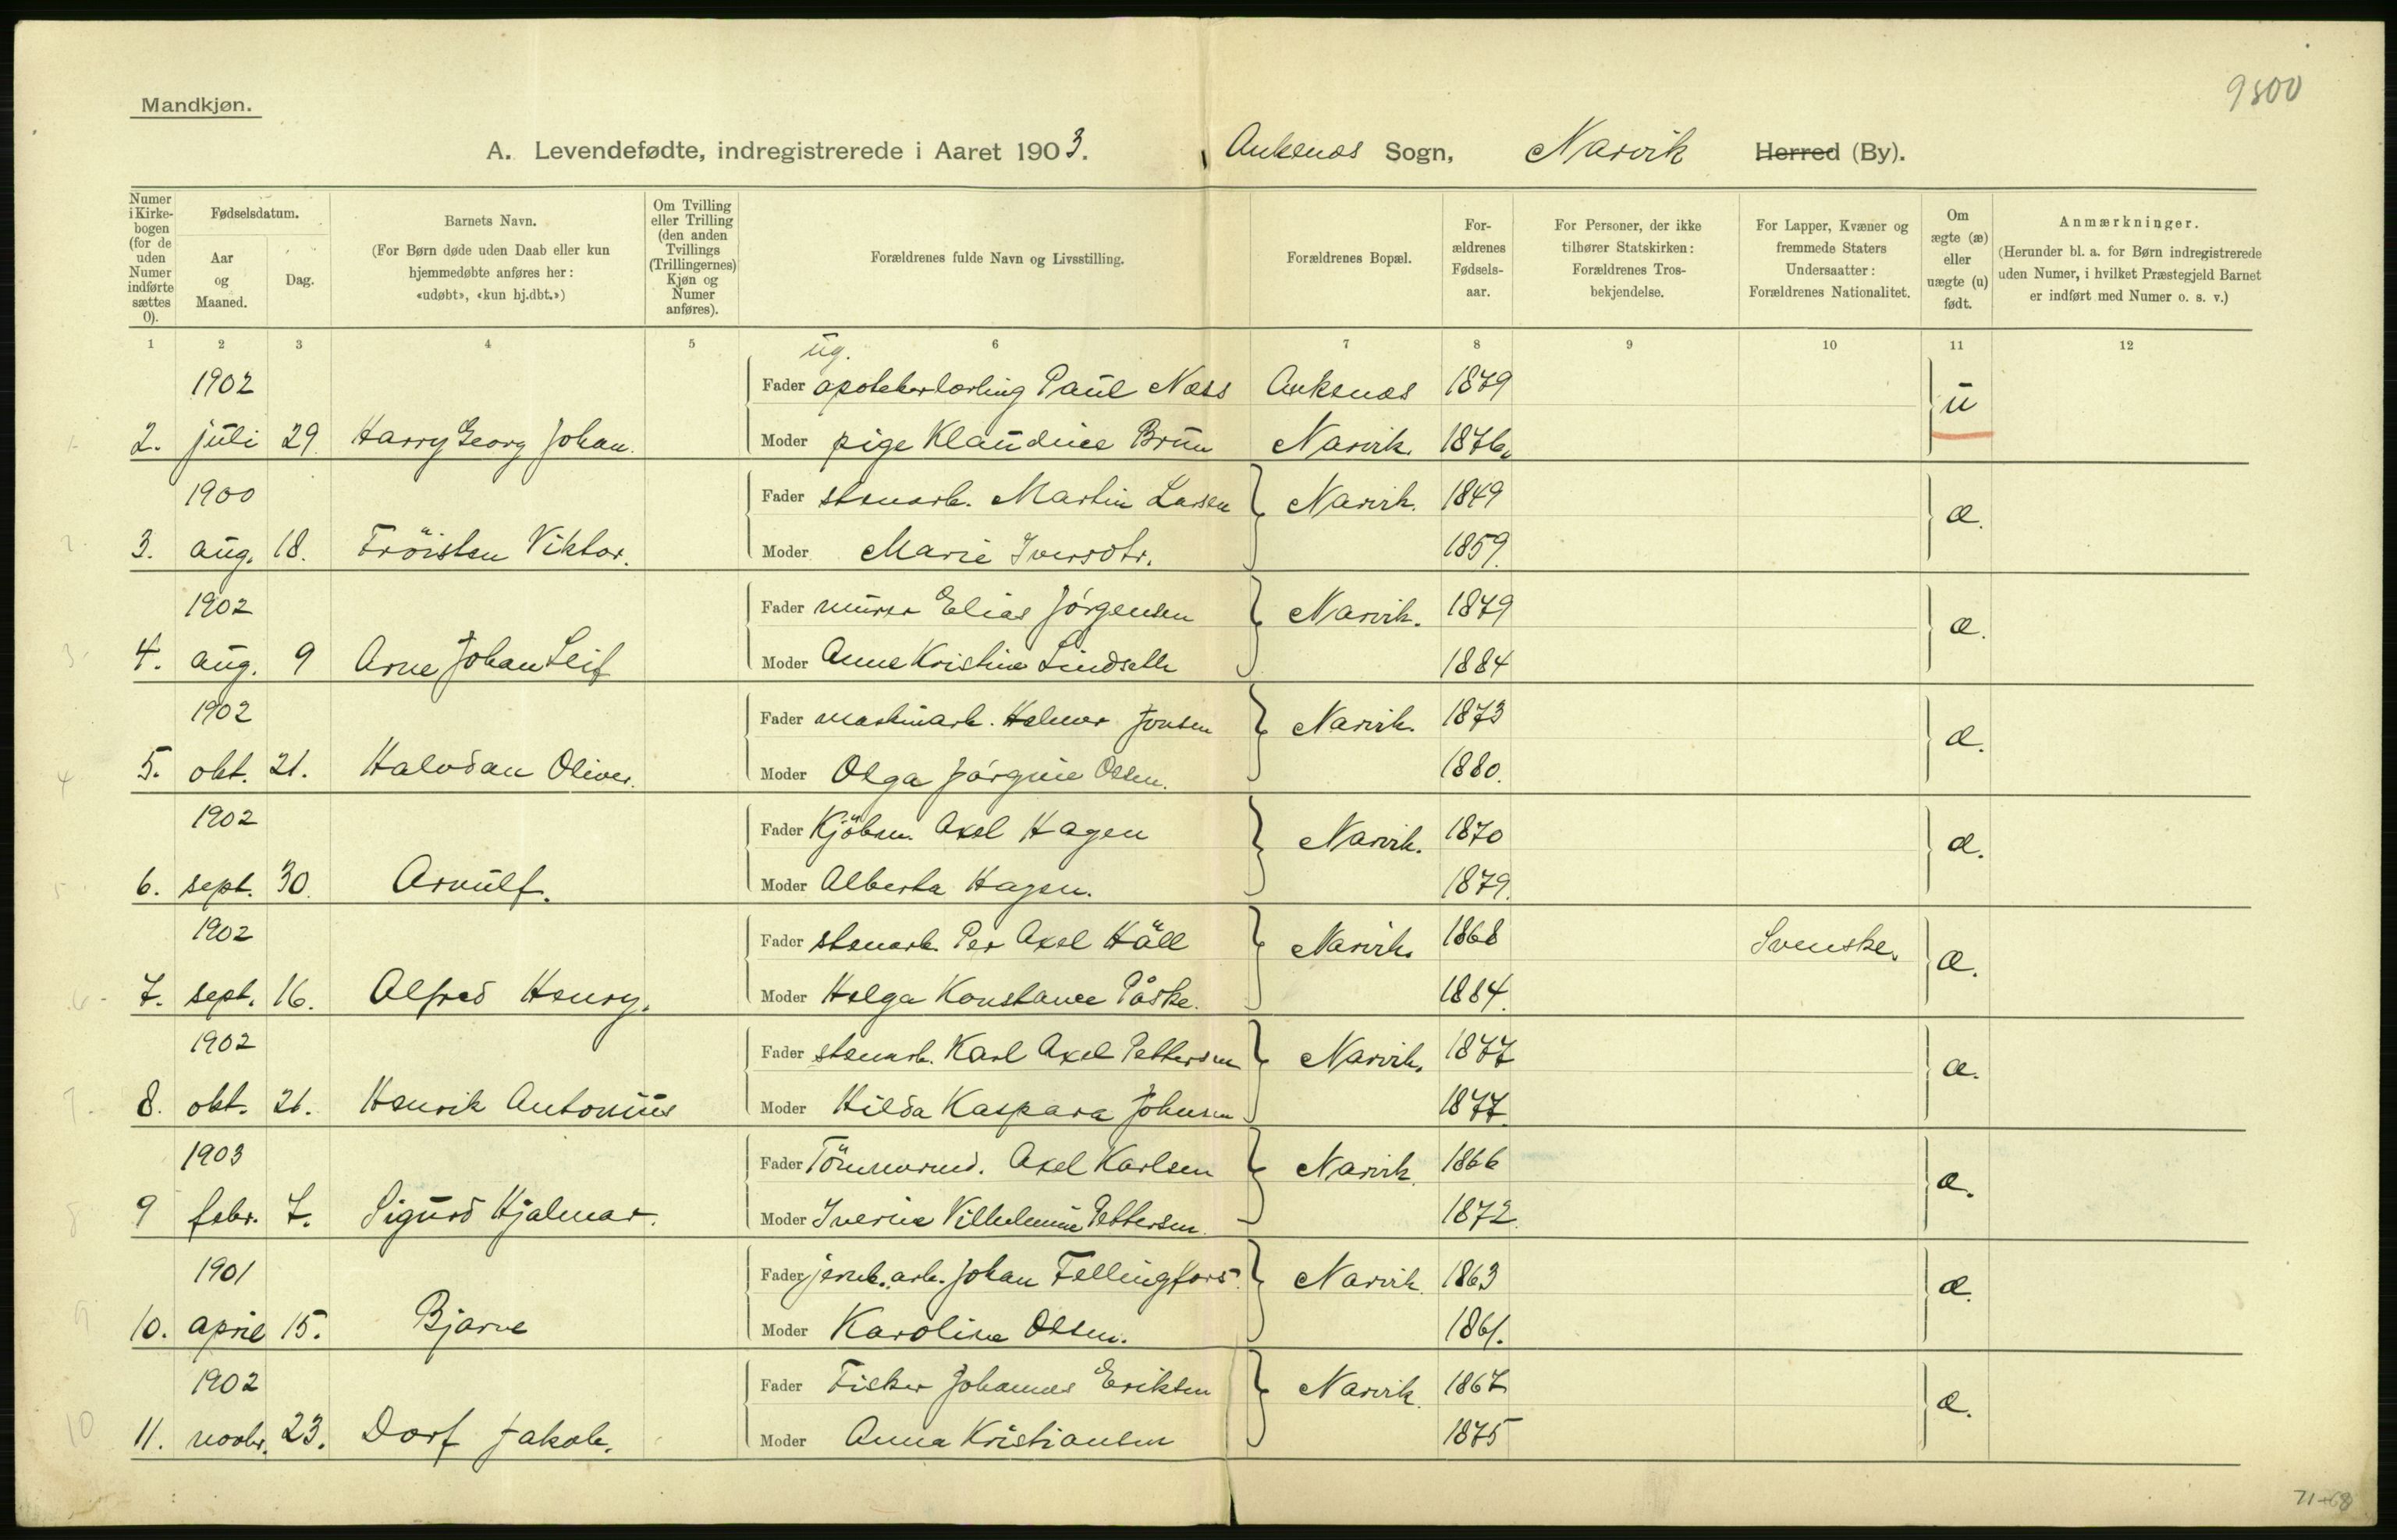 9800
Mandkjøn.
A. Levendefødte, indregistrerede i Aaret 1903. Ankenæs Sogn, Narvik Herred (By).
Numer i Kirkebogen (for de uden Numer indførte sættes 0).
Fødselsdatum.
Aar og Maaned.
Dag.
Barnets Navn.
(For Børn døde uden Daab eller kun hjemmedøbte anføres her: «udøbt», «kun hj.dbt.»)
Om Tvilling eller Trilling (den anden Tvillings (Trillingernes) Kjøn og Numer anføres).
Forældrenes fulde Navn og Livsstilling.
Forældrenes Bopæl.
Forældrenes Fødselsaar.
For Personer, der ikke tilhører Statskirken: Forældrenes Trosbekjendelse.
For Lapper, Kvæner og fremmede Staters Undersaatter: Forældrenes Nationalitet.
Om ægte (æ) eller uægte (u) født.
Anmærkninger.
(Herunder bl. a. for Børn indregistrerede uden Numer, i hvilket Præstegjeld Barnet er indført med Numer o. s. v.)
1 2 3 4 5 6 7 8 9 10 11 12
ug.
1902 Fader apotekerlærling Paul Næss Ankenæs 1879 u
1. 2. juli 29. Harry Georg Johan. Moder pige Klaudine Brun Narvik. 1876.
1900 Fader stenarb. Martin Larsen Narvik. 1849 æ.
2. 3. aug. 18. Fröisten Viktor. Moder Marie Iversdtr. 1859.
1902 Fader murer Elias Jörgensen Narvik. 1879 æ.
3. 4. aug. 9 Arne Johan Leif Moder Anne Kristine Lindseth 1884
1902 Fader maskinarb. Halmar Jonsen Narvik. 1873 æ.
4 5. okt. 21. Halvdan Oliver. Moder Olga Jörgine Olsen. 1880.
1902 Fader Kjöbm. Axel Hagen Narvik. 1870 æ.
5. 6. sept. 30. Arnulf. Moder Alberta Hagen. 1879.
1902 Fader stenarb. Per Axel Häll Narvik. 1868 Svenske. æ.
6. 7. sept. 16. Alfred Henry. Moder Helga Konstance Påske. 1884.
1902 Fader stenarb. Karl Axel Pettersen Narvik. 1877 æ.
7. 8. okt. 21. Henrik Antonius Moder Hilda Kaspara Johnsen 1877.
1903 Fader Tömmermd. Axel Karlsen Narvik. 1866 æ.
8 9 febr. 7. Sigurd Hjalmar. Moder Iverine Vilhelmine Pettersen. 1872.
1901 Fader jernb.arb. Johan Fellingfors Narvik. 1863 æ.
9 10. april 15. Bjarne Moder Karoline Olsen. 1861.
1902 Fader Fisker Johannes Eriksen Narvik. 1867 æ.
10 11. novbr. 23. Dorf Jakob. Moder Anna Kristiansen 1875
71-68